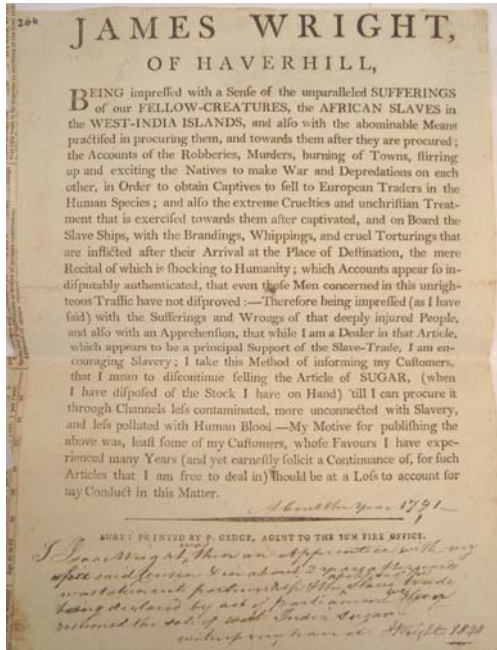 204
JAMES WRIGHT,
OF HAVERHILL,
BEING impreſſed with a Senſe of the unparalleled SUFFERINGS
of our FELLOW-CREATURES, the AFRICAN SLAVES in
the WEST-INDIA ISLANDS, and alſo with the abominable Means
practiſed in procuring them, and towards them after they are procured;
the Accounts of the Robberies, Murders, burning of Towns, ſtirring
up and exciting the Natives to make War and Depredations on each
other, in Order to obtain Captives to ſell to European Traders in the
Human Species; and alſo the extreme Cruelties and unchriſtian Treat-
ment that is exerciſed towards them after captivated, and on Board the
Slave Ships, with the Brandings, Whippings, and cruel Torturings that
are inflicted after their Arrival at the Place of Deſtination, the mere
Recital of which is ſhocking to Humanity; which Accounts appear ſo in-
diſputably authenticated, that even thoſe Men concerned in this unrigh-
teous Traffic have not diſproved :—Therefore being impreſſed (as I have
ſaid) with the Sufferings and Wrongs of that deeply injured People,
and alſo with an Apprehenſion, that while I am a Dealer in that Article,
which appears to be a principal Support of the Slave-Trade, I am en-
couraging Slavery; I take this Method of informing my Cuſtomers,
that I mean to diſcontinue ſelling the Article of SUGAR, (when
I have diſpoſed of the Stock I have on Hand) 'till I can procure it
through Channels leſs contaminated, more unconnected with Slavery,
and leſs polluted with Human Blood.—My Motive for publiſhing the
above was, leaſt ſome of my Cuſtomers, whoſe Favours I have expe-
rienced many Years (and yet earneſtly ſolicit a Continuance of, for ſuch
Articles that I am free to deal in) ſhould be at a Loſs to account for
my Conduct in this Matter.
About the Year 1791
BURY: PRINTED BY P. GEDGE, AGENT TO THE SUN FIRE OFFICE.
I Wright, then an Apprentice with my
said Cousin & in about 2 years afterwards
was taken into partnership & the Slave trade
being declared by act of Parliament
resumed the sale of West India Sugar
witness my hand Wright